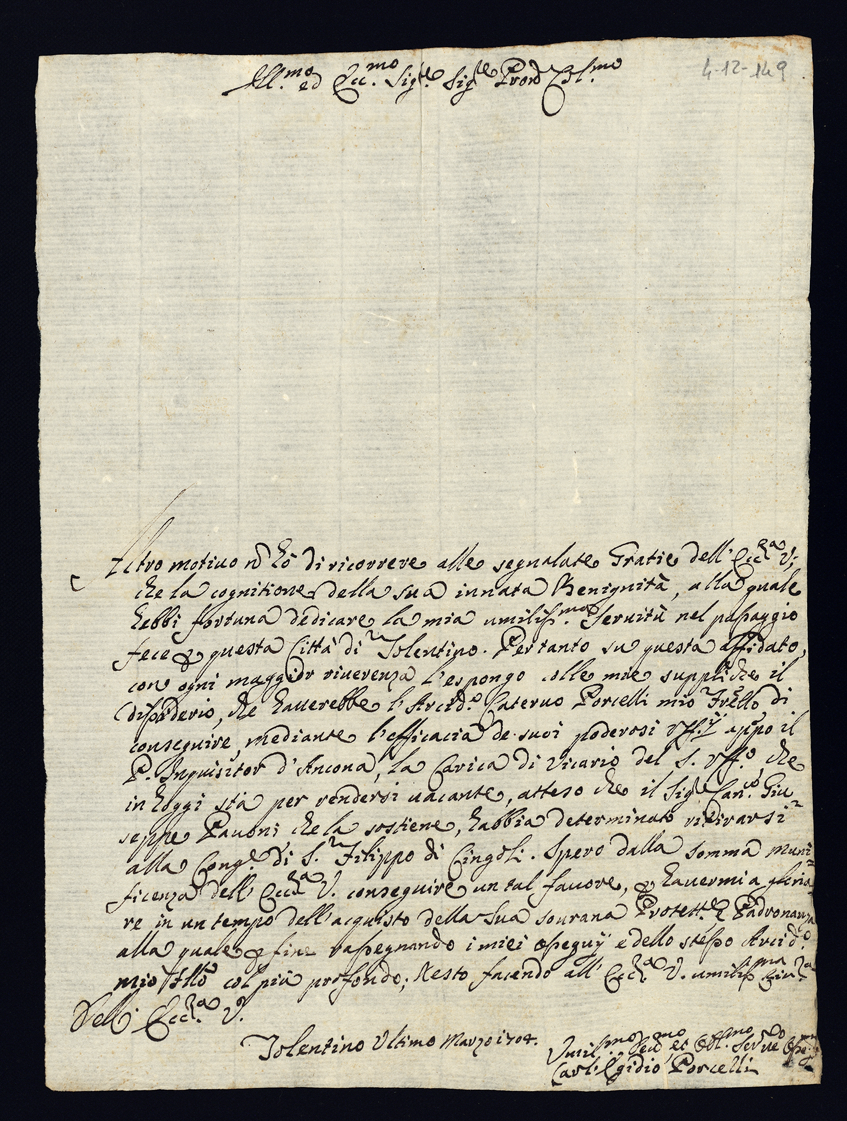 Ill.mo ed Ecc.mo Sig.re Sig.re Pron Col.mo
4-12-149
Altro motiuo nõ hò di ricorrere alle segnalate Gratie dell' Ecc.za V;
che la cognitione della sua innata Benignità, alla quale
hebbi fortuna dedicare la mia umiliss.ma Seruitù nel passaggio
fece p questa Città di Tolentino. Pertanto su questa affidato,
con ogni maggior riuerenza l'espongo colle mie suppliche il
disiderio, che hauerebbe l'Arcid.o Cateruo Porcelli mio Frẽllo di
conseguire, mediante l'efficacia de suoi poderosi vff.ij appo il
P. Inquisitor d'Ancona, la Carica di Vicario del S. Vff.o, che
in hoggi stà per rendersi uacante, atteso che il Sig.re Can.o Giu
seppe Pauoni che la sostiene, habbia determinato ritirarsi
alla Cong.e di S. Filippo di Cingoli. Spero dalla somma muni
ficenza dell' Ecc.za V. conseguire un tal fauore, & hauermi a gloria
re in un tempo dell'acquisto della Sua sourana Protett.e e Padronanza
alla quale p fine rassegnando i miei ossequij e dello stesso Arcid.o
mio Fẽllo col più profondo, Resto facendo all' Ecc.za V. umiliss.ma
Dell' Ecc.za V.
Tolentino Ultimo Marzo 1704.
Umil.mo Deu.mo et Obl.mo Ser.re
Carl' Egidio Porcelli